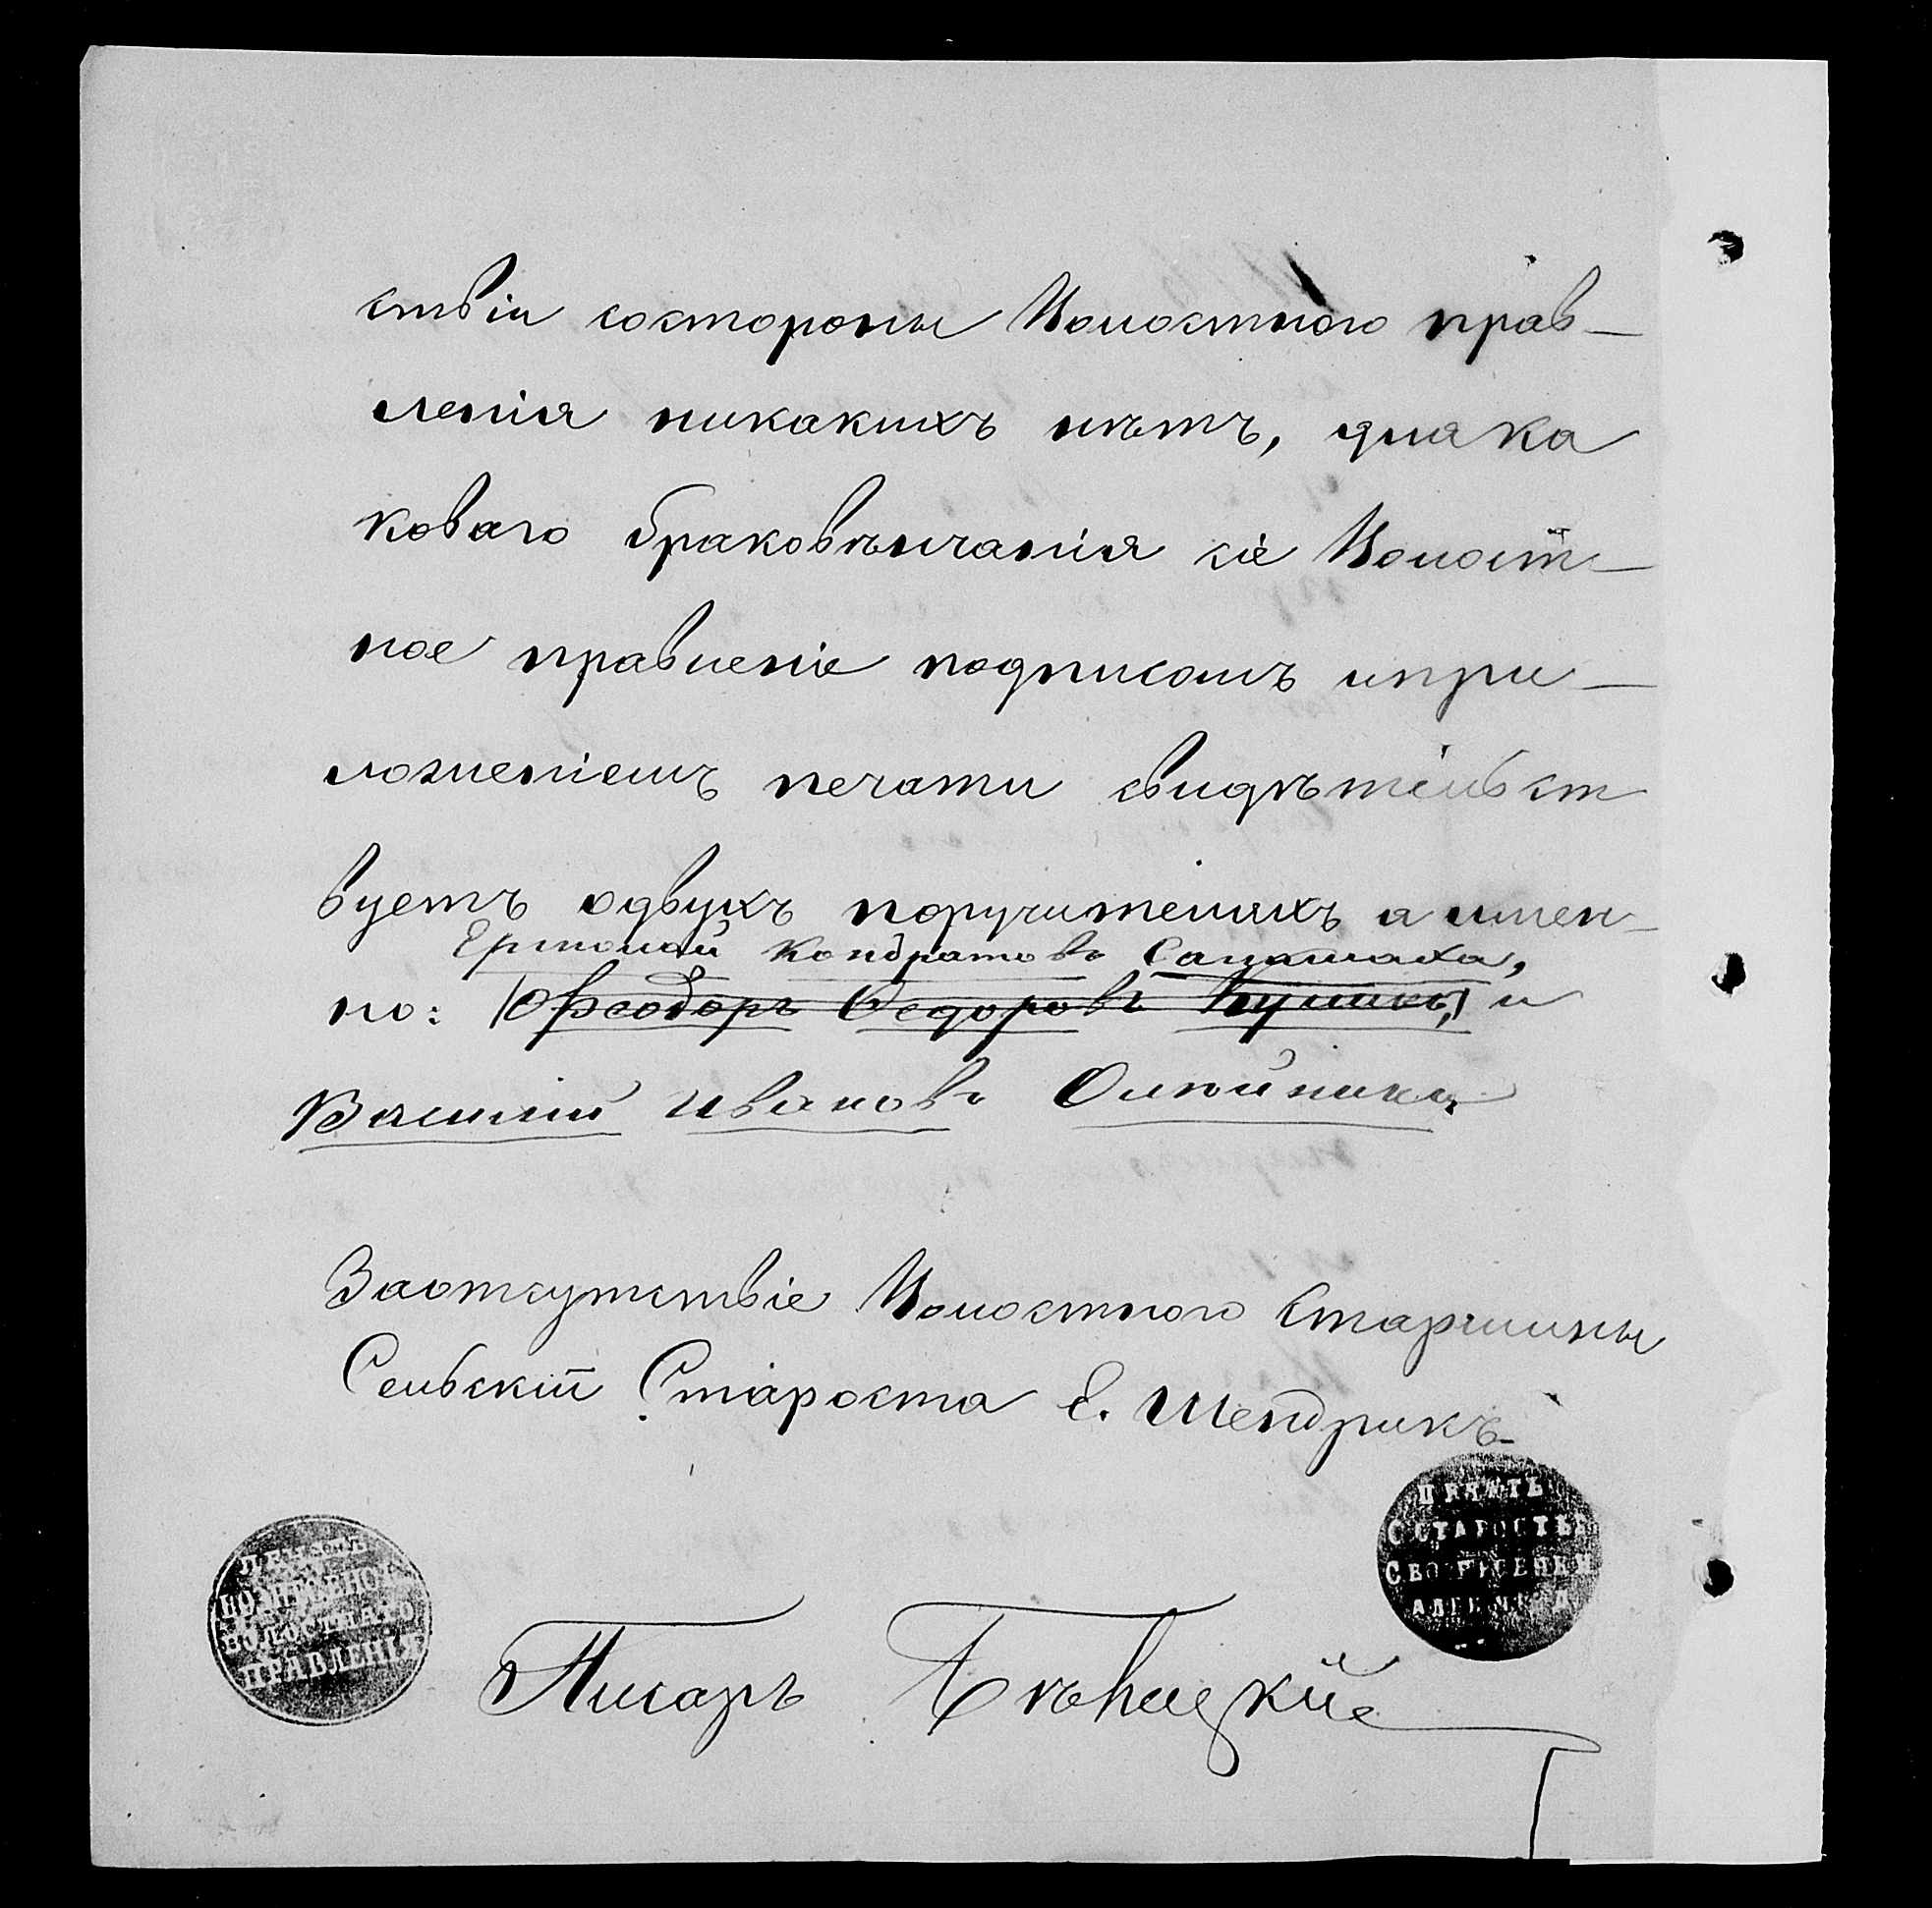 ствіи состороны Волостного прав-
ленія никакихъ нѣтъ, для ка
коваго браковѣнчанія сіе Волост-
ное правленіе подписомъ ипри-
ложеніемъ печати свидѣтельст
вуетъ одвухъ поручителяхъ а имен-
Ермолай Кондратовъ
но: Феодоръ Федоровъ и
Василій Ивановъ Олейника
Заотсутствіе Волостного Старшины
Сельскій Староста Е. Шендрикъ
ПЕЧАТЬ
С СТАРОСТЫ
ПЕЧАТЬ
ВОЛОСТНАГО
ПРАВЛЕНІЯ
Писарь Бѣлицкій